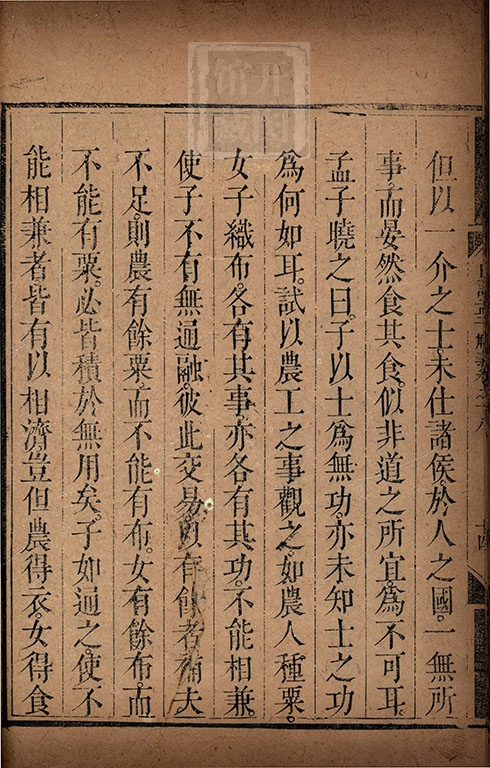 但以一介之士未仕諸侯於人之國一無所
事而晏然食其食似非道之所宜為不可耳
孟子曉之曰子以士為無功亦未知士之功
為何如耳試以農工之事觀之如農人種粟
女子織布各有其事亦各有其功不能相兼
使子不有無通融彼此交易以有餘者補夫
不足則農有餘粟而不能有布女有餘布而
不能有粟必皆積於無用矣子如通之使不
能相兼者皆有以相濟豈但農得衣女得食